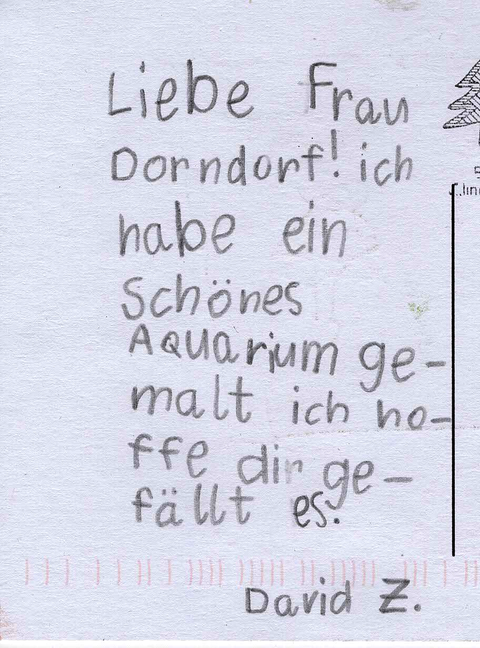 Liebe Frau
Dorndorf! ich
habe ein
Schönes
Aquarium ge-
malt ich ho-
ffe dir ge-
fällt es.
David Z.